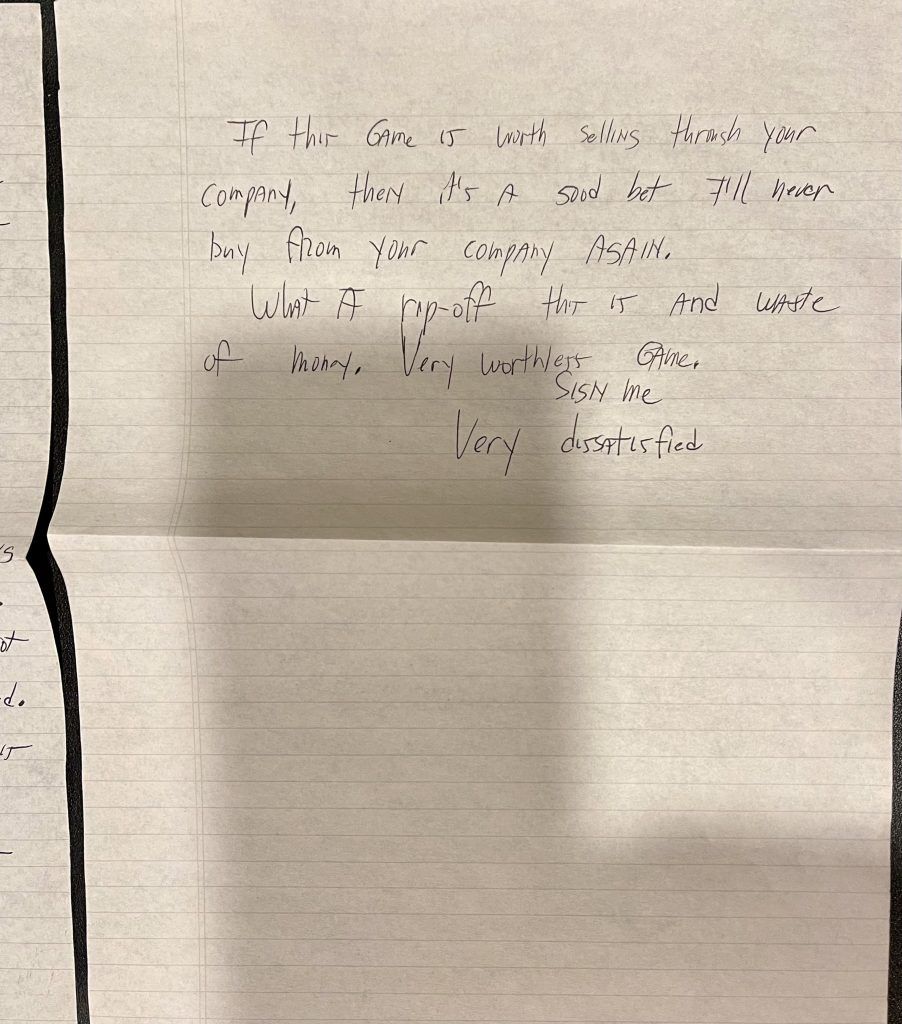 If this Game is worth selling through your
company, then it's A good bet I'll never
buy from your company AGAIN.
What A rip-off this is And waste
of money. Very worthless Game.
Sign me
Very dissatisfied
s
ot
d.
is